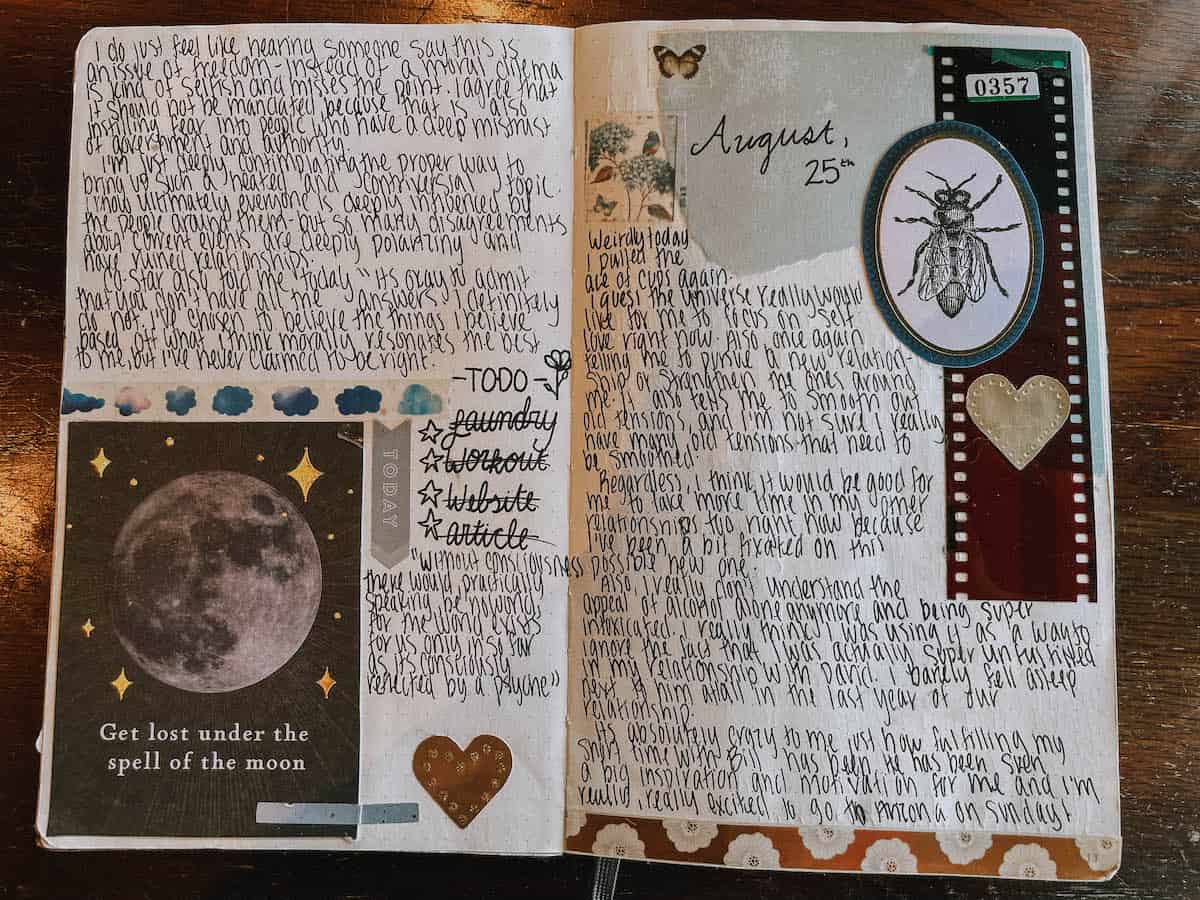 I do just feel like hearing someone say this is
an issue of freedom - instead of a moral dilema
is kind of selfish and misses the point. I agree that
it should not be mandated because that is also
instilling fear into people who have a deep mistrust
of government and authority.
I'm just deeply contimplating the proper way to
bring up such a heated and contriversial topic.
I know ultimately everyone is deeply influenced by
the people around them - but so many disagreements
about current events are deeply polarizing and
have ruined relationships.
Co-Star also told me today "Its okay to admit
that you don't have all the answers" I definitely
do not. I've chosen to believe the things I believe
based off what I think morally resonates the best
to me, but I've never claimed to be right.
-TODO-
laundry
workout
website
article
TODAY
"Without consciousness
there would practically
speaking, be no world
for the world exists
for us only in so far
as its consciously
reflected by a psyche"
Get lost under the
spell of the moon
August,
25th
0357
Weirdly today
I pulled the
ace of cups again.
I guess the universe really would
like for me to focus on self
love right now. Also once again
telling me to pursue a new relation-
ship or strengthen the ones around
me. It also tells me to smooth out
old tensions, and I'm not sure I really
have many old tensions that need to
be smoothed
Regardless, I think it would be good for
me to take more time in my other
relationships too right now because
I've been a bit fixated on this
possible new one.
Also, I really don't understand the
appeal of alcohol alone anymore and being super
intoxicated. I really think I was using it as a way to
ignore the fact that I was actually super unfulfilled
in my relationship with David. I barely fell asleep
next to him at all in the last year of our
relationship.
It's absolutely crazy to me just how fulfilling my
time with Bill has been. He has been
a big inspiration and motivation for me and I'm
really, really excited to go to Arizona on Sunday!
13